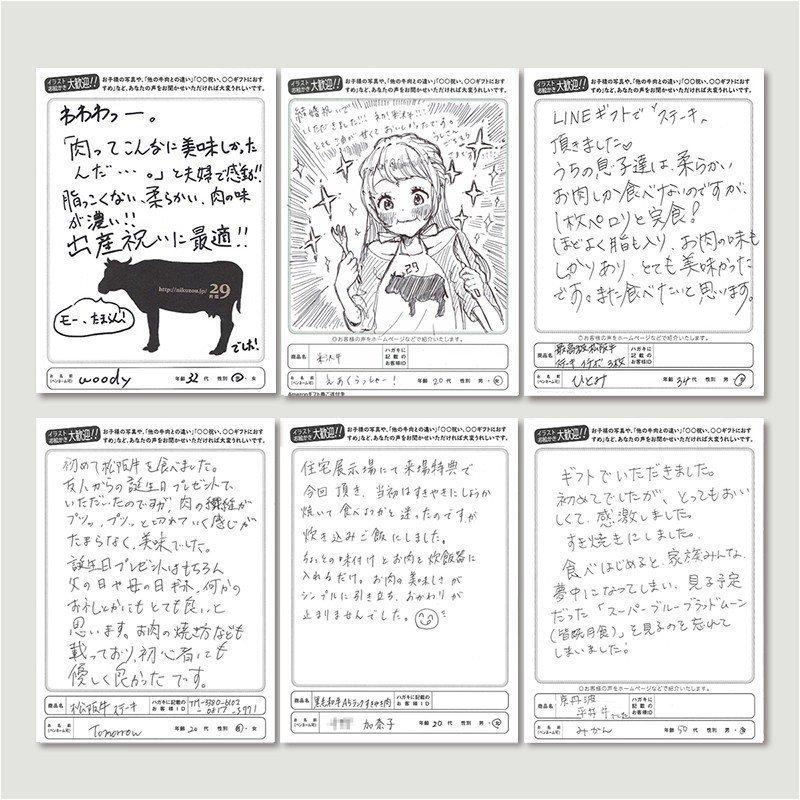 イラスト お絵かき 大歓迎!! お子様の写真や、「他の牛肉との違い」「○○祝い、○○ギフトにおすすめ」など、あなたの声をお聞かせいただければ大変うれしいです。
わわわっー。
「肉ってこんなに美味しかった
んだ・・・。」と夫婦で感動!!
脂っこくない、柔らかい、肉の味
が濃い!!
出産祝いに最適!!
http://nikuzou.jp/ 29
肉蔵
モー、たまらん!
でしょ!
お名前 (ペンネーム可) woody 年齢 32代 性別 男・女
イラスト お絵かき 大歓迎!! お子様の写真や、「他の牛肉との違い」「○○祝い、○○ギフトにおすすめ」など、あなたの声をお聞かせいただければ大変うれしいです。
結婚祝いで
いただきました!!
とても油が甘くておいしかったです。
29
◎お客様の声をホームページなどで紹介いたします。
商品名 米沢牛 ハガキに記載のお客様ID
お名前 (ペンネーム可) 年齢 20代 性別 男・女
イラスト お絵かき 大歓迎!! お子様の写真や、「他の牛肉との違い」「○○祝い、○○ギフトにおすすめ」など、あなたの声をお聞かせいただければ大変うれしいです。
LINEギフトで"ステーキ"
頂きました♡
うちの息子達は、柔らかい
お肉しか食べないのですが、
1枚ペロリと完食!
ほどよく脂も入り、お肉の味も
しかりあり、とても美味かった
です。また食べたいと思います。
◎お客様の声をホームページなどで紹介いたします。
商品名 最高級松阪牛 ハガキに記載のお客様ID
ステーキ 3枚
お名前 (ペンネーム可) ひとみ 年齢 34代 性別 男・女
イラスト お絵かき 大歓迎!! お子様の写真や、「他の牛肉との違い」「○○祝い、○○ギフトにおすすめ」など、あなたの声をお聞かせいただければ大変うれしいです。
初めて松阪牛を食べました。
友人からの誕生日プレゼントで
いただいたのですが、肉の繊維が
プツッ、プツッと切れていく感じが
たまらなく、美味でした。
誕生日プレゼントはもちろん
父の日や母の日ギフト、何かの
お礼とかにもとても良いと
思います。お肉の焼き方なども
載っており、初心者にも
優しく良かったです。
商品名 松阪牛ステーキ ハガキに記載のお客様ID
お名前 (ペンネーム可) Tomorrow 年齢 20代 性別 男・女
イラスト お絵かき 大歓迎!! お子様の写真や、「他の牛肉との違い」「○○祝い、○○ギフトにおすすめ」など、あなたの声をお聞かせいただければ大変うれしいです。
住宅展示場にて来場特典で
今回頂き、当初はすきやきにしようか
焼いて食べようかと迷ったのですが
炊き込みご飯にしました。
ちょっとの味付けとお肉を炊飯器に
入れるだけ。お肉の美味しさが
シンプルに引き立ち、おかわりが
止まりませんでした。
商品名 黒毛和牛A5ランクすきやき肉 ハガキに記載のお客様ID
お名前 (ペンネーム可) 加奈子 年齢 20代 性別 男・女
イラスト お絵かき 大歓迎!! お子様の写真や、「他の牛肉との違い」「○○祝い、○○ギフトにおすすめ」など、あなたの声をお聞かせいただければ大変うれしいです。
ギフトでいただきました。
初めてでしたが、とってもおい
しくて、感激しました。
すき焼きにしました。
食べはじめると、家族みんな、
夢中になってしまい、見る予定
だった「スーパーブルーブラッドムーン
(皆既月食)」を見るのを忘れて
しまいました!
◎お客様の声をホームページなどで紹介いたします。
商品名 京丹波 平井牛 ハガキに記載のお客様ID
お名前 (ペンネーム可) みかん 年齢 50代 性別 男・女